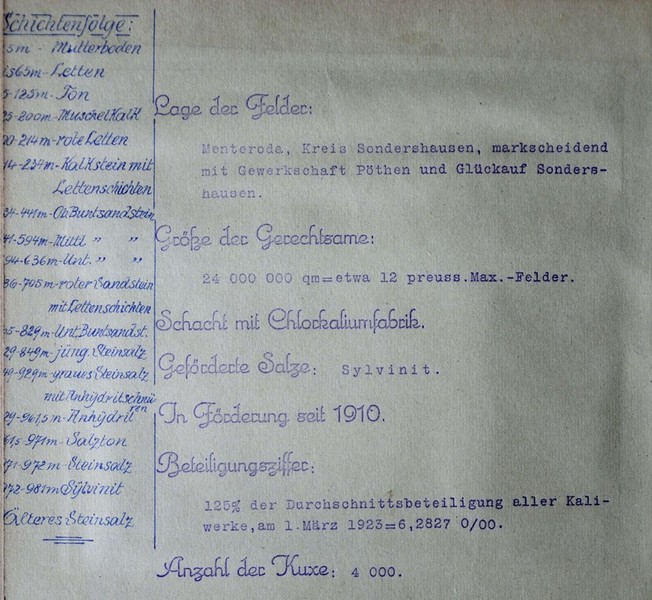 Schichtenfolge:
5m - Mutterboden
is65m - Letten
5-125m - Ton
25-200m - Muschelkalk
00-214m - rote Letten
14-234m - Kalkstein mit
Lettenschichten
34-441m - Ob. Buntsandstein
41-594m - Mittl " "
94-636m - Unt. " "
36-705m - roter Sandstein
mit Lettenschichten
05-829m - Unt. Buntsandst.
29-849m - jüng. Steinsalz
49-929m - graues Steinsalz
mit Anhydritschnü
ren
29-961,5m - Anhydrit
61,5-971m - Salzton
971-972m - Steinsalz
972-981m Sylvinit
Älteres Steinsalz
Lage der Felder:
Menteroda, Kreis Sondershausen, markscheidend
mit Gewerkschaft Pöthen und Glückauf Sonders-
hausen.
Größe der Gerechtsame:
24 000 000 qm=etwa 12 preuss.Max.-Felder.
Schacht mit Chlorkaliumfabrik.
Geförderte Salze: Sylvinit.
In Förderung seit 1910.
Beteiligungsziffer:
125% der Durchschnittsbeteiligung aller Kali-
werke,am 1.März 1923=6,2827 0/00.
Anzahl der Kuxe: 4 000.